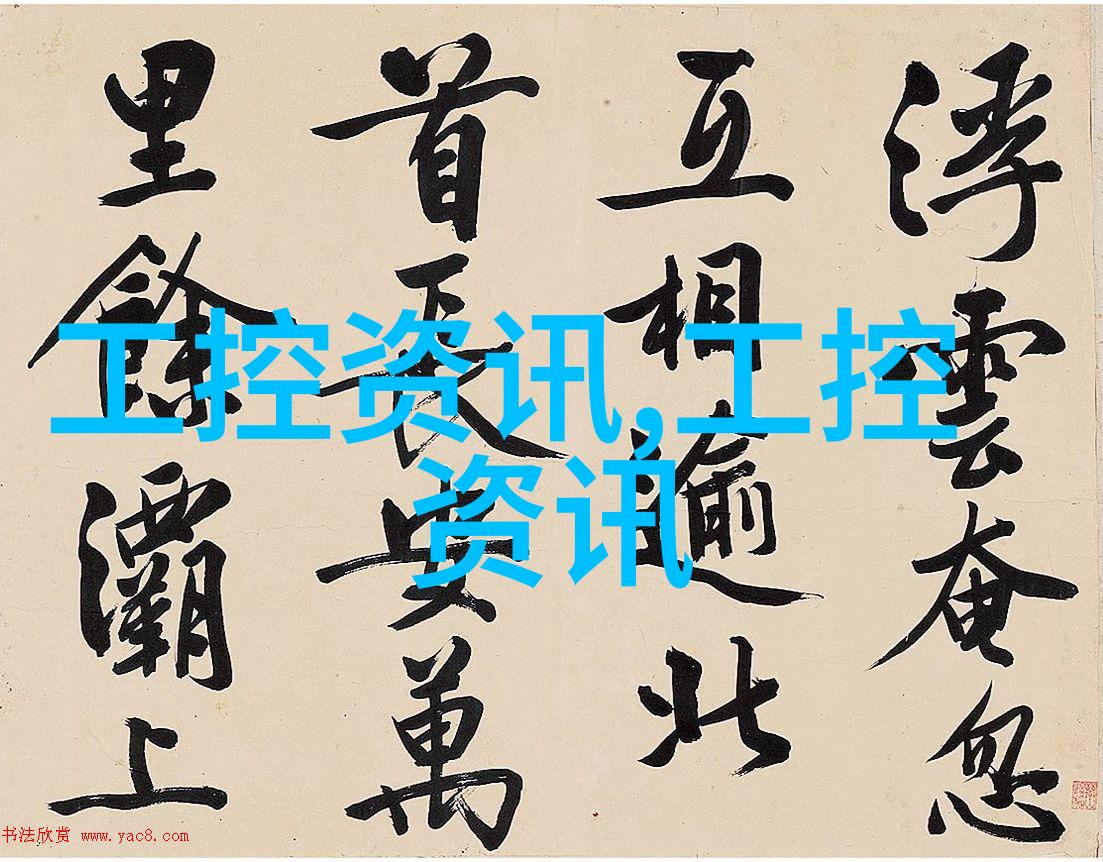 浮雲奄忽
互相逾北
首長安萬
里餘灞上
工控资讯,工控
资讯
书法欣赏 www.yac8.com